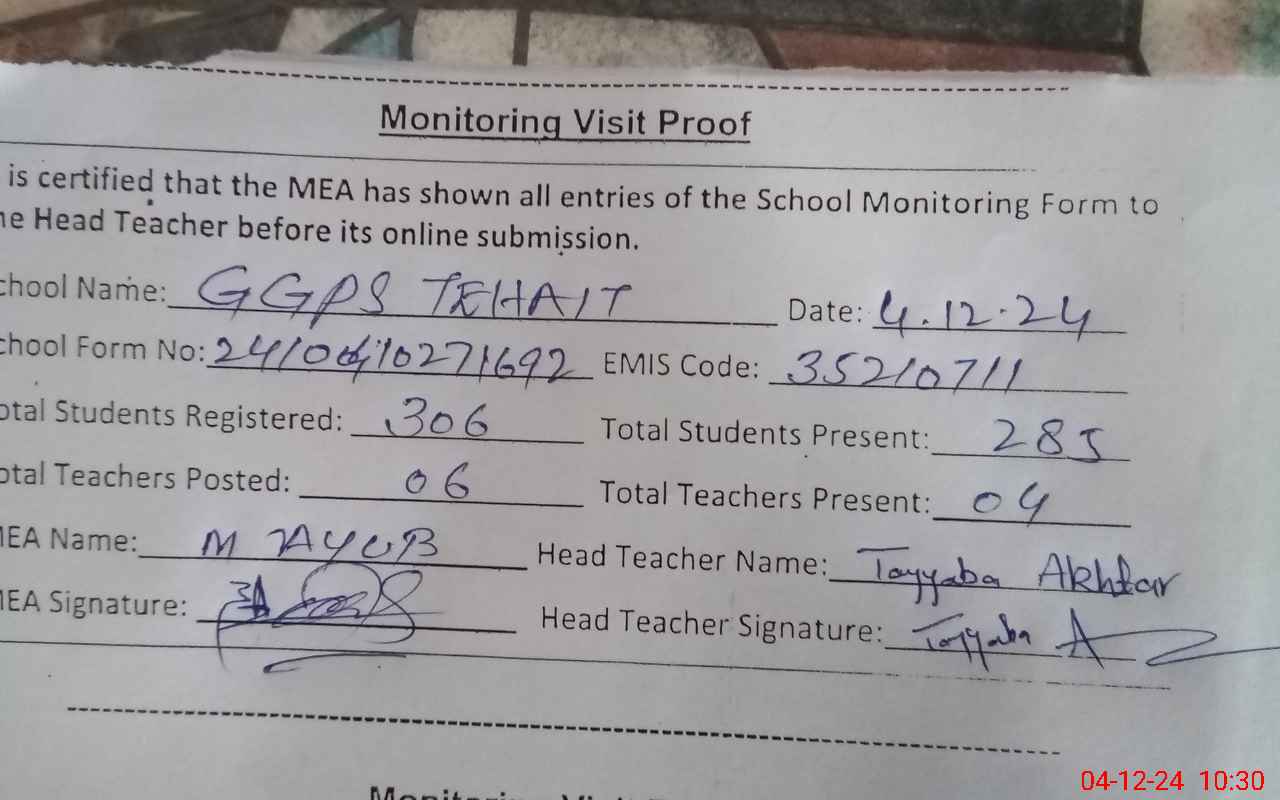 Monitoring Visit Proof
is certified that the MEA has shown all entries of the School Monitoring Form to
he Head Teacher before its online submission.
chool Name: GGPS TEHAIT Date: 4.12.24
chool Form No: EMIS Code: 35210711
otal Students Registered: 306 Total Students Present: 285
otal Teachers Posted: 06 Total Teachers Present: 04
MEA Name: M AYUB Head Teacher Name: Tayyaba Akhtar
MEA Signature: Head Teacher Signature: Tayyaba A
04-12-24 10:30